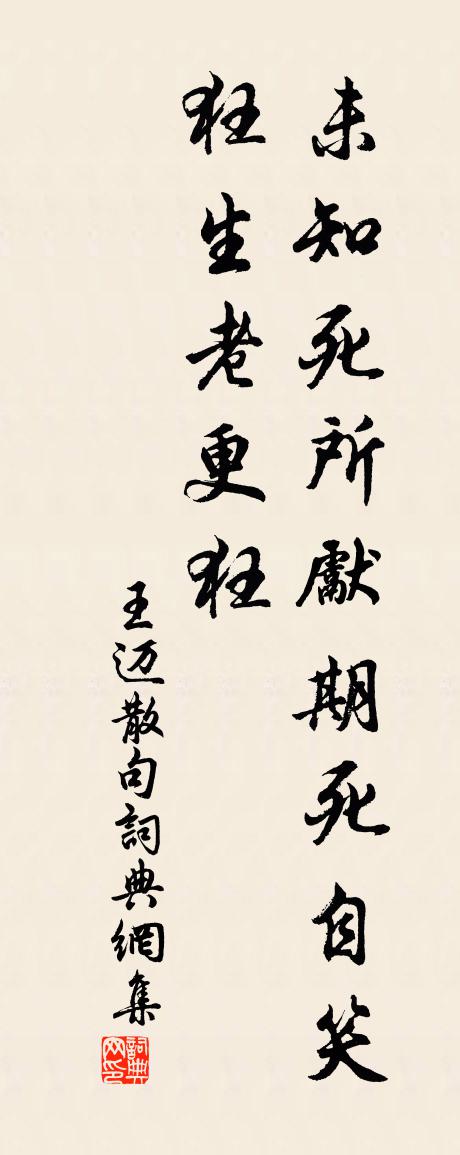 未知死所獻期死自笑
狂生老更狂
王迈散句詞典網集
詞典网印